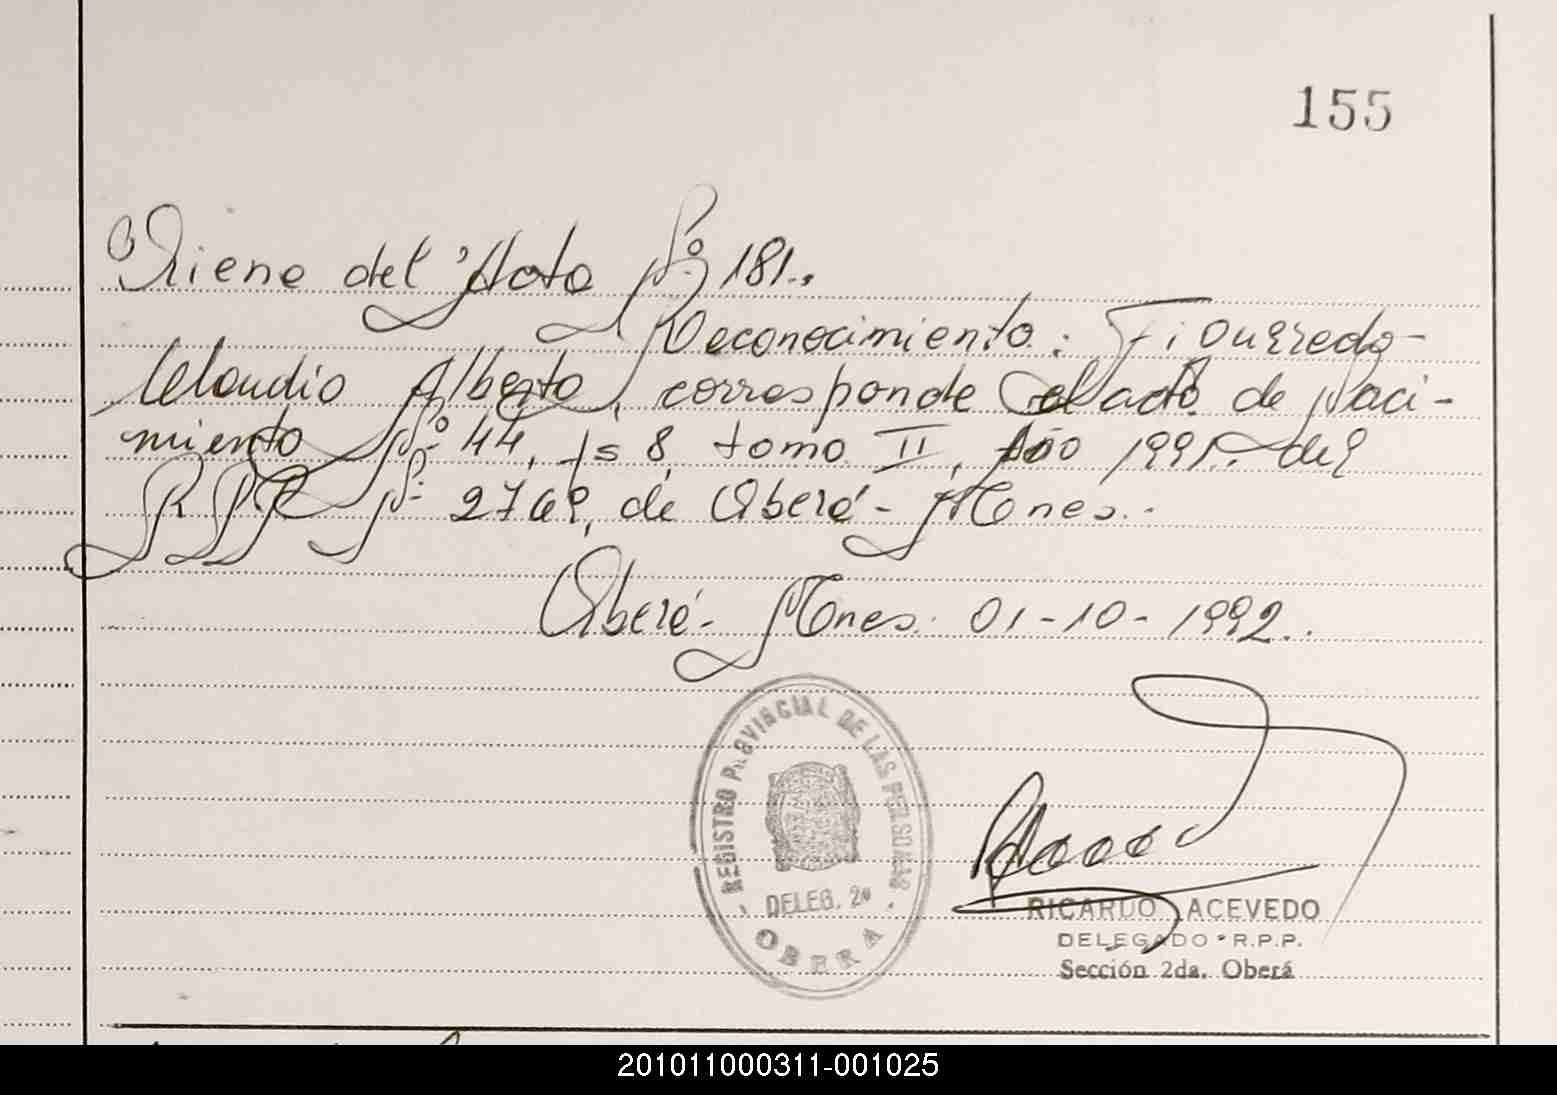 155
Viene del Acta Nº 181.,
Reconocimiento: Figueredo-
Claudio Alberto, corresponde al acta de Naci-
miento Nº 44, fs 8, tomo II, Año 1991. del
RPP Nº 2769, de Oberá - Mnes.-
Oberá - Mnes. 01-10-1992..
REGISTRO PROVINCIAL DE LAS PERSONAS
DELEG. 2ª
OBERA
RICARDO ACEVEDO
DELEGADO R.P.P.
Sección 2da. Oberá
201011000311-001025